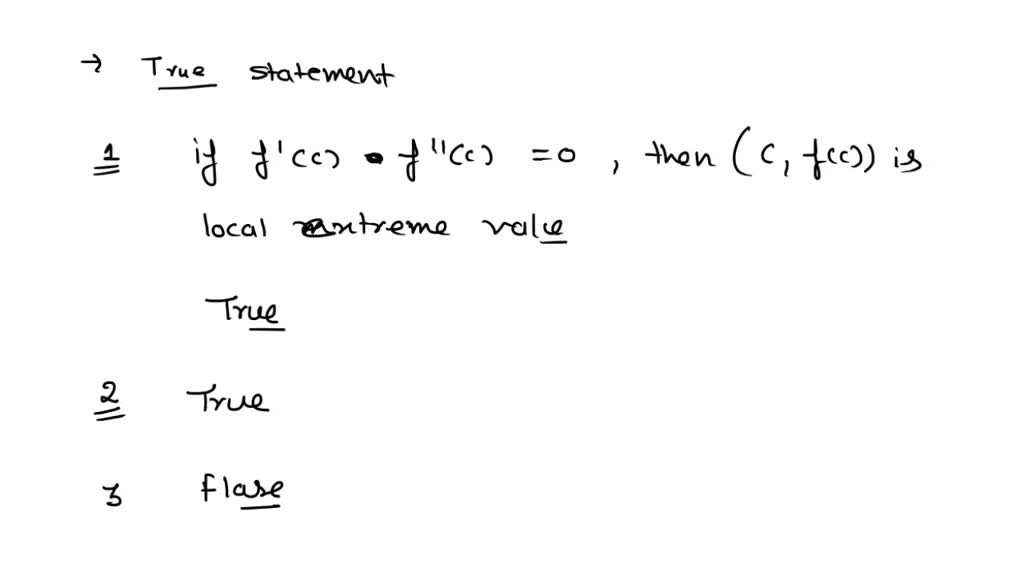 → True statement
1 if f'(c) • f''(c) = 0, then (c, f(c)) is
local extreme value
True
2 True
3 flase